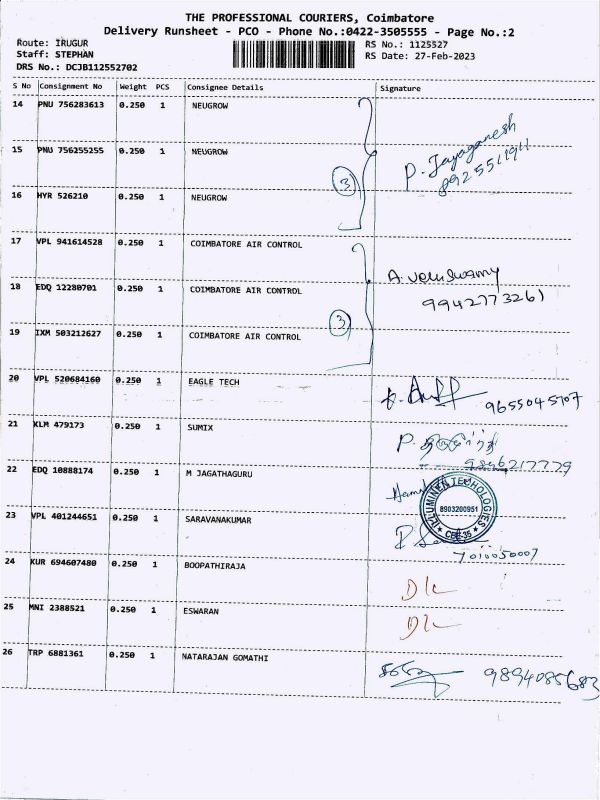 THE PROFESSIONAL COURIERS, Coimbatore
Delivery Runsheet - PCO - Phone No.:0422-3505555 - Page No.:2
Route: IRUGUR
RS No.: 1125527
Staff: STEPHAN
RS Date: 27-Feb-2023
DRS No.: DCJB112552702
S No Consignment No Weight PCS Consignee Details Signature
14 PNU 756283613 0.250 1 NEUGROW
P. Jayaganesh
15 PNU 756255255 0.250 1 NEUGROW
3
16 HYR 526210 0.250 1 NEUGROW
17 VPL 941614528 0.250 1 COIMBATORE AIR CONTROL
18 EDQ 12280701 0.250 1 COIMBATORE AIR CONTROL
9942773261
3
19 IXM 503212627 0.250 1 COIMBATORE AIR CONTROL
20 VPL 520684160 0.250 1 EAGLE TECH
21 KLM 479173 0.250 1 SUMIX
22 EDQ 10888174 0.250 1 M JAGATHAGURU
ILLUMINE TECHNOLOGIES
8903200951
CBE-35
23 VPL 401244651 0.250 1 SARAVANAKUMAR
7010050007
24 KUR 694607480 0.250 1 BOOPATHIRAJA
D/L
25 MNI 2388521 0.250 1 ESWARAN
D/L
26 TRP 6881361 0.250 1 NATARAJAN GOMATHI
9894085683